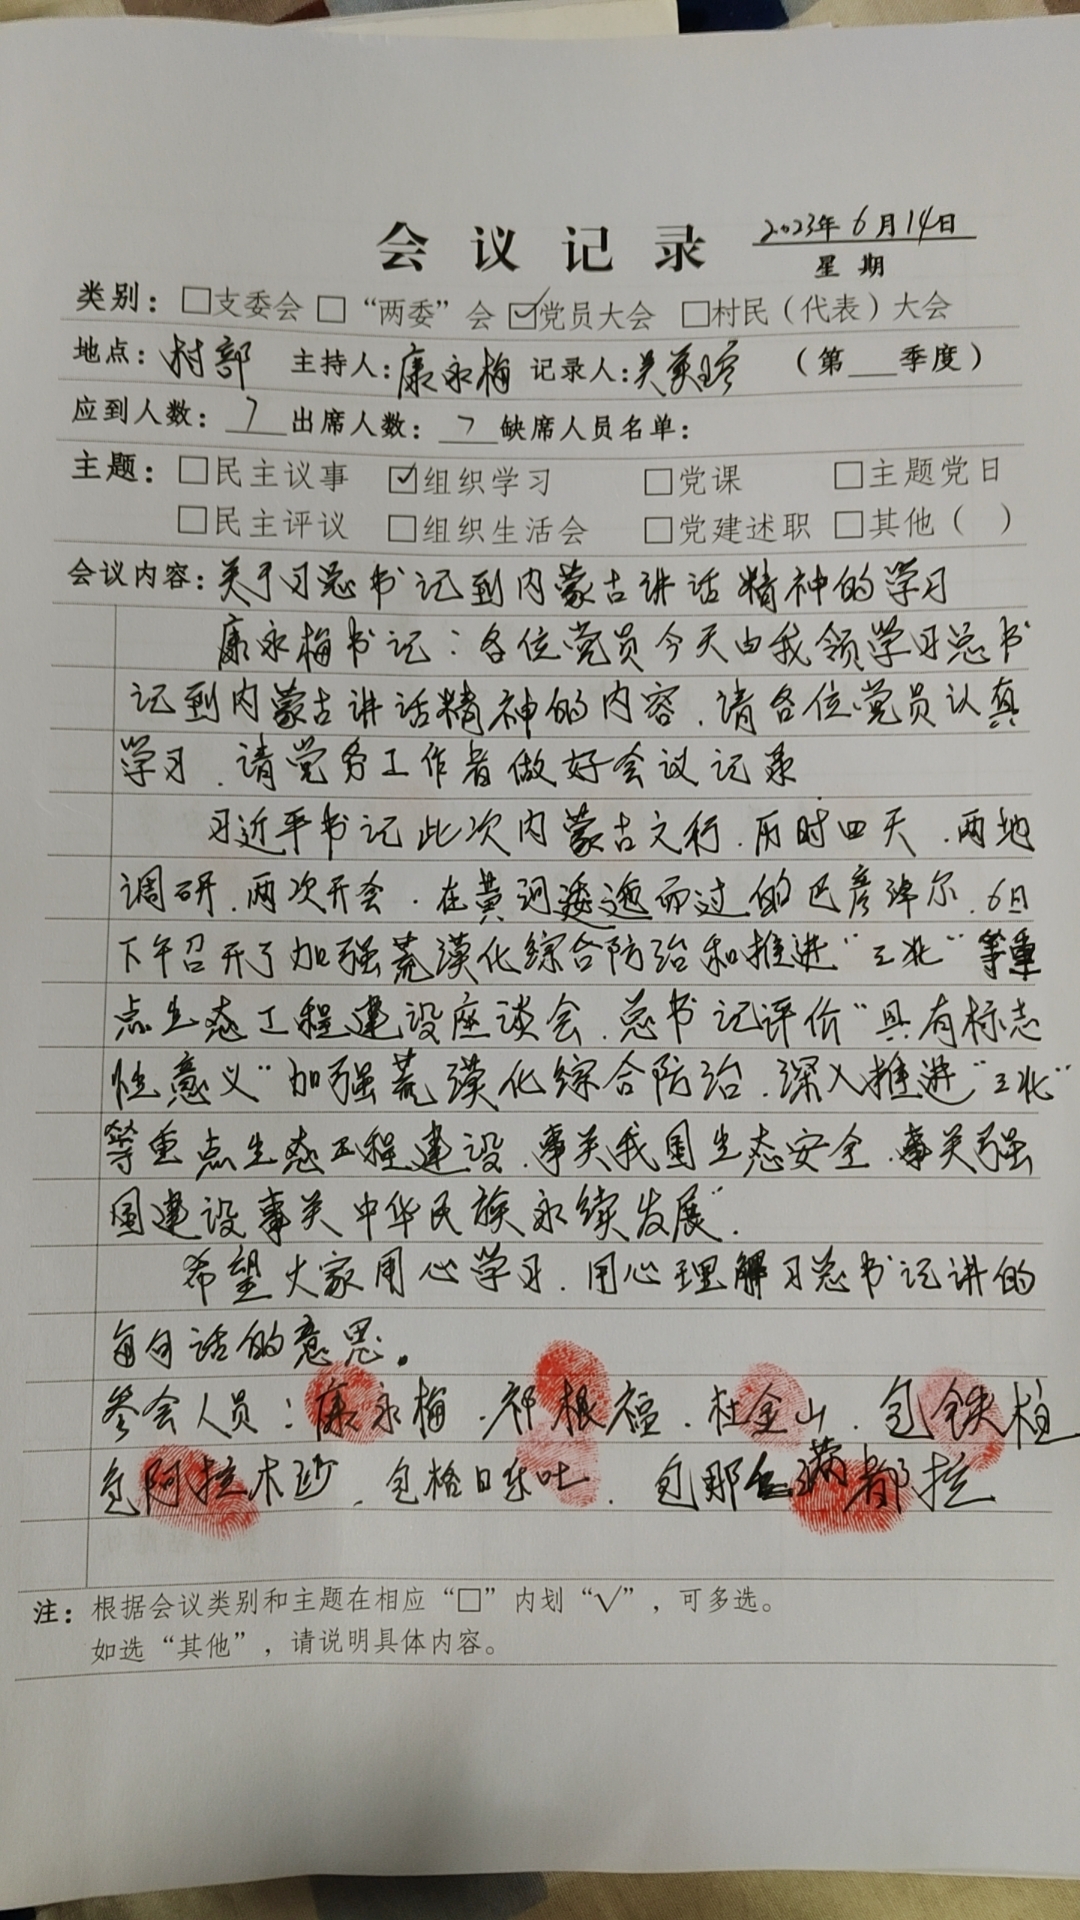 会议记录 2023年6月14日
星期
类别：□支委会 □“两委”会 ☑党员大会 □村民（代表）大会
地点：村部 主持人：康永梅 记录人：吴英 （第 季度）
应到人数：7 出席人数：7 缺席人员名单：
主题：□民主议事 ☑组织学习 □党课 □主题党日
□民主评议 □组织生活会 □党建述职 □其他（ ）
会议内容：关于习总书记到内蒙古讲话精神的学习
康永梅书记：各位党员今天由我领学习总书
记到内蒙古讲话精神的内容，请各位党员认真
学习，请党务工作者做好会议记录
习近平书记此次内蒙古之行，历时四天，两地
调研，两次开会，在黄河逶迤而过的巴彦淖尔，6日
下午召开了加强荒漠化综合防治和推进“三北”等重
点生态工程建设座谈会，总书记评价“具有标志
性意义”加强荒漠化综合防治，深入推进“三北”
等重点生态工程建设，事关我国生态安全，事关强
国建设事关中华民族永续发展”.
希望大家用心学习，用心理解习总书记讲的
每句话的意思。
参会人员：康永梅．祁根福．杜金山．包铁柱
包阿拉木沙．包格日乐吐．包那 满都拉
注：根据会议类别和主题在相应“□”内划“√”，可多选。
如选“其他”，请说明具体内容。